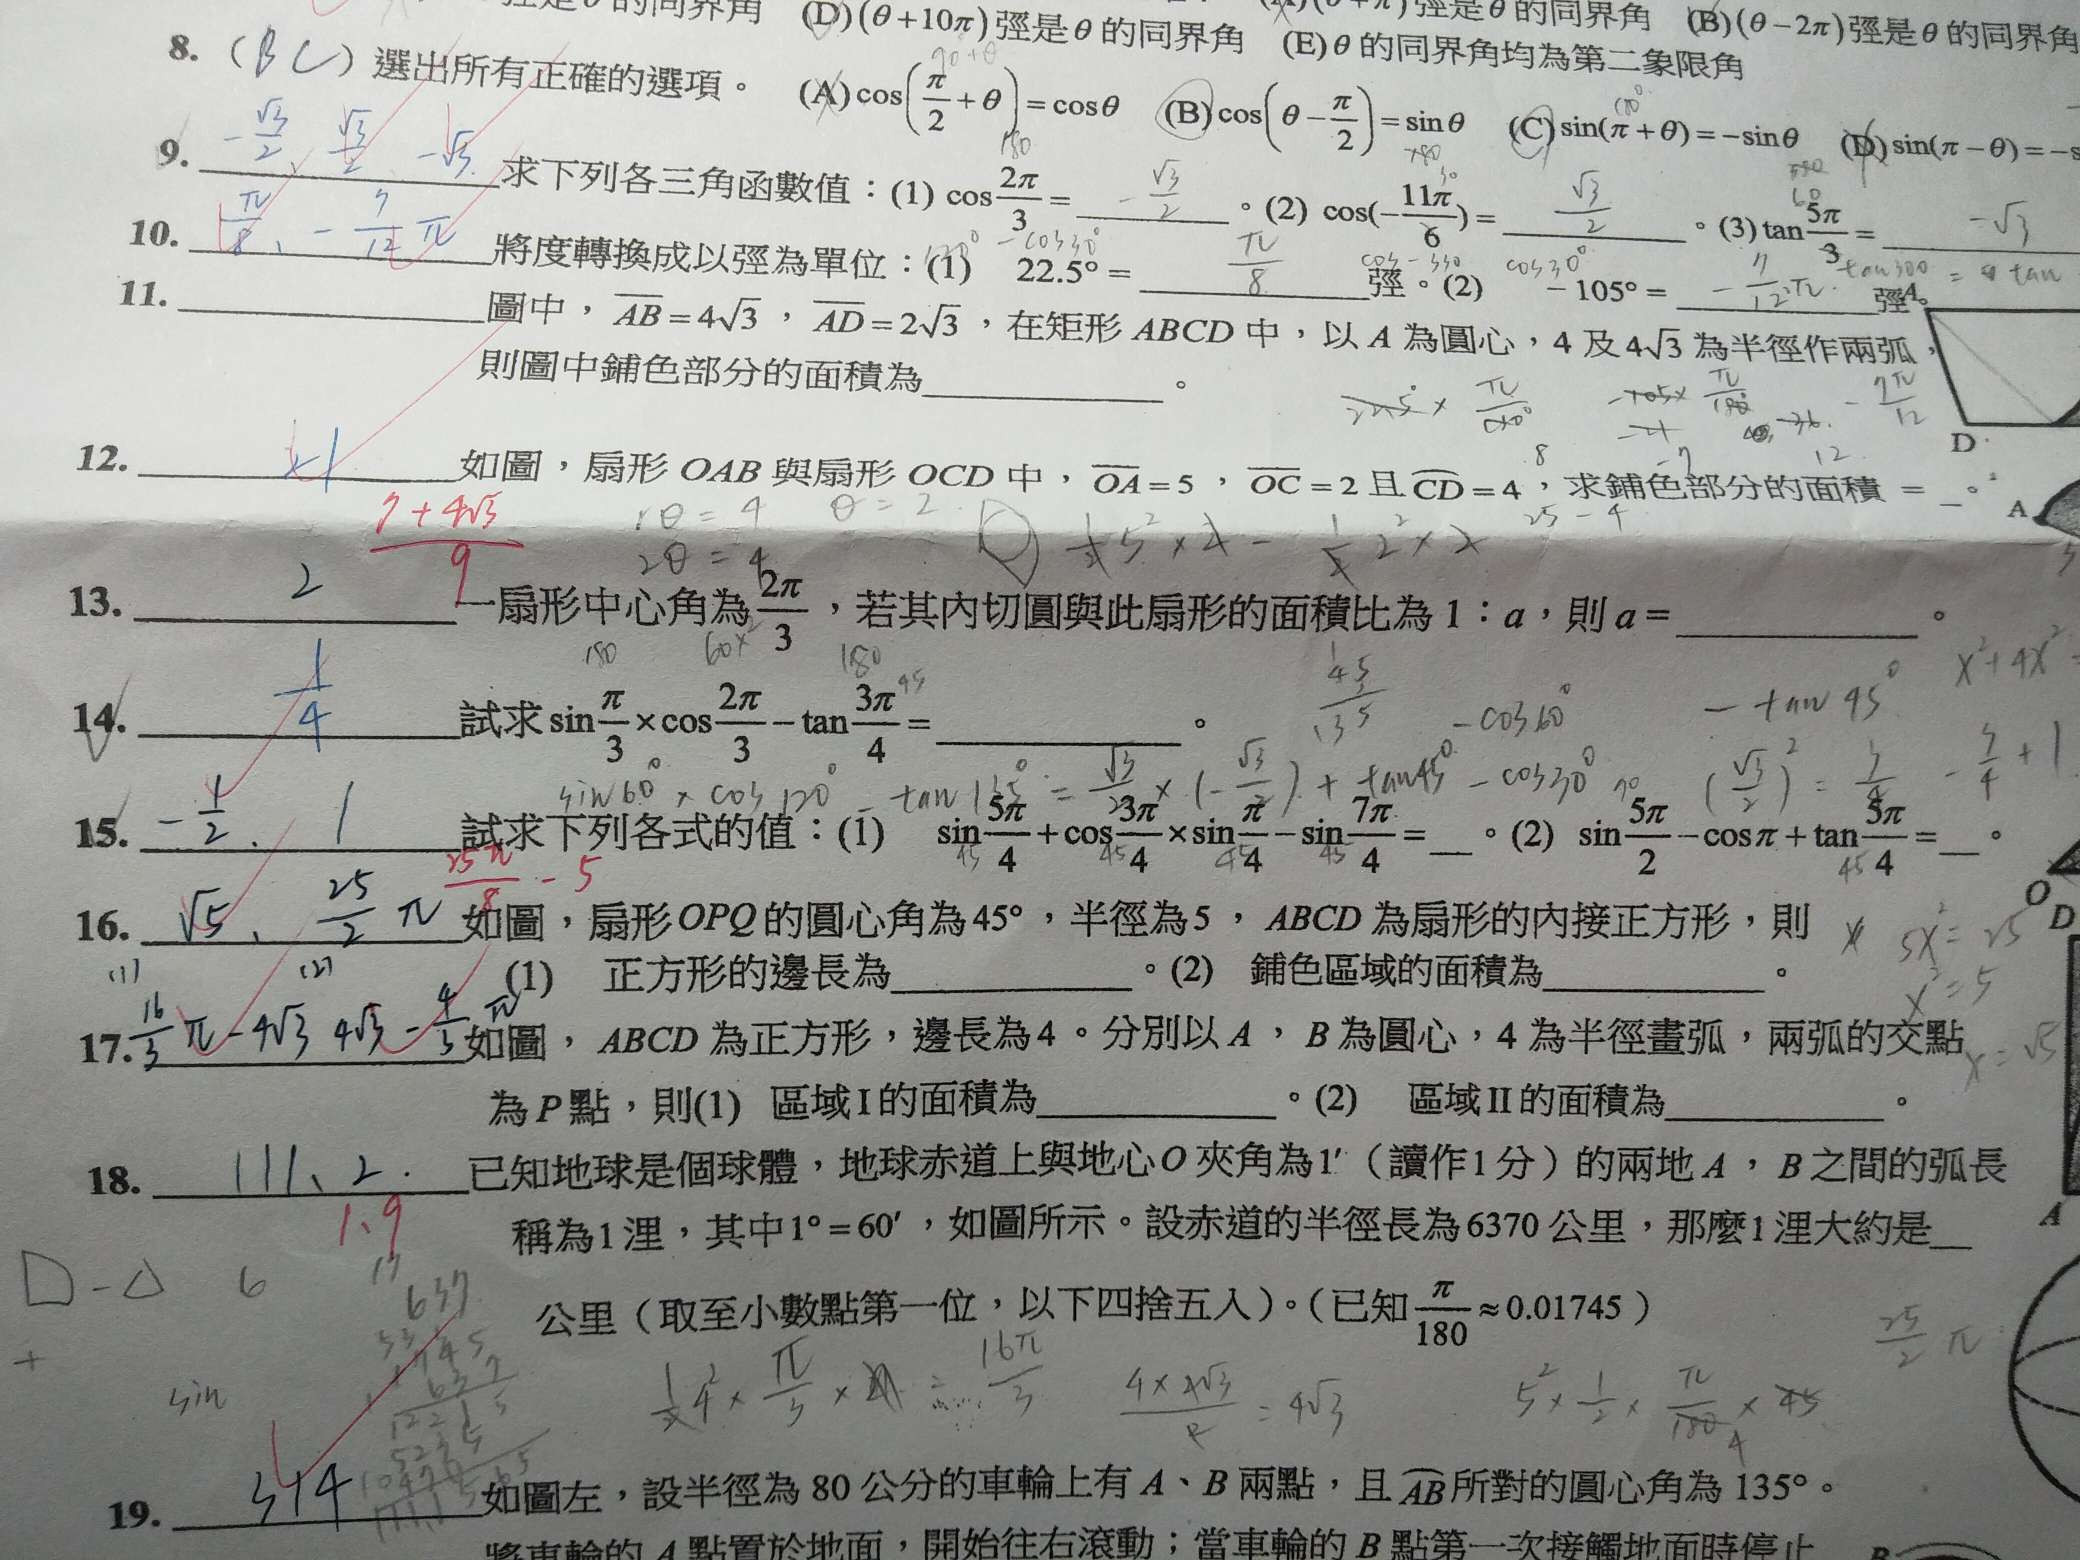 (D)(θ+10π)弳是θ的同界角 (E)θ的同界角均為第二象限角
弳是θ的同界角 (B)(θ−2π)弳是θ的同界角
8. (BC) 選出所有正確的選項。 (A)cos(π/2+θ)=cosθ (B)cos(θ−π/2)=sinθ (C)sin(π+θ)=−sinθ (D)sin(π−θ)=−s
9. −√3/2、√3/2、−√3 求下列各三角函數值：(1) cos 2π/3 = −√3/2 。(2) cos(−11π/6)= √3/2 。(3) tan 5π/3 = −√3
10. π/8、−7/12 π 將度轉換成以弳為單位：(1) 22.5°= π/8 弳。(2) −105°= −7/12 π 弳。
11. 圖中，AB=4√3，AD=2√3，在矩形ABCD中，以A為圓心，4及4√3為半徑作兩弧，
則圖中鋪色部分的面積為 。
−105× π/180° −7π/12
A
D
12. 21 如圖，扇形OAB與扇形OCD中，OA=5，OC=2且CD=4，求鋪色部分的面積= 。
A
rθ=4 θ=2 25−4
2θ=4
7+4√3/9
13. 2 一扇形中心角為2π/3，若其內切圓與此扇形的面積比為1：a，則a= 。
14. 1/4 試求sin π/3 ×cos 2π/3 −tan 3π/4 = 。
45/135 −cos60° −tan45°
sin60°×cos120°−tan135°=√3/2×(−√3/2)+tan45° −cos30° (√3/2)²=3/4 −3/4+1
15. −1/2、1 試求下列各式的值：(1) sin 5π/4 +cos 3π/4 ×sin π/4 −sin 7π/4 = 。(2) sin 5π/2 −cosπ+tan 5π/4 = 。
25π/8 −5
16. √5、25/2 π 如圖，扇形OPQ的圓心角為45°，半徑為5，ABCD為扇形的內接正方形，則
(1) 正方形的邊長為 。(2) 鋪色區域的面積為 。
O
D
x²+4x²=
5x²=25
x²=5
x=√5
17. 16/3 π−4√3 4√3−4/3 π 如圖，ABCD為正方形，邊長為4。分別以A，B為圓心，4為半徑畫弧，兩弧的交點
為P點，則(1) 區域I的面積為 。(2) 區域II的面積為 。
A
18. 111、2. 已知地球是個球體，地球赤道上與地心O夾角為1′（讀作1分）的兩地A，B之間的弧長
1.9
稱為1浬，其中1°=60′，如圖所示。設赤道的半徑長為6370公里，那麼1浬大約是
公里（取至小數點第一位，以下四捨五入）。（已知 π/180 ≈0.01745）
637
sin
16π/3 4×4√3/2=4√3 5²×1/2×π/180×45 25/2 π
19. 314 如圖左，設半徑為80公分的車輪上有A、B兩點，且AB所對的圓心角為135°。
將車輪的A點置於地面，開始往右滾動；當車輪的B點第一次接觸地面時停止
B